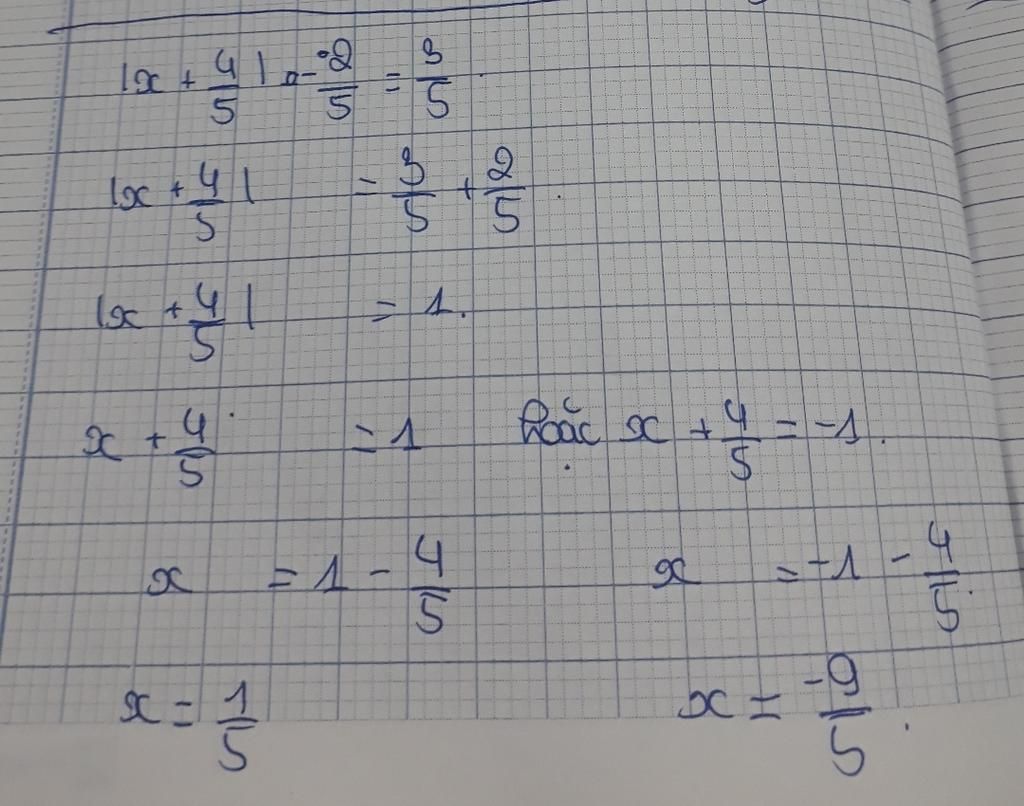 |x + 4/5| - 2/5 = 3/5
|x + 4/5| = 3/5 + 2/5
|x + 4/5| = 1.
x + 4/5 = 1 hoặc x + 4/5 = -1.
x = 1 - 4/5 x = -1 - 4/5
x = 1/5 x = -9/5.